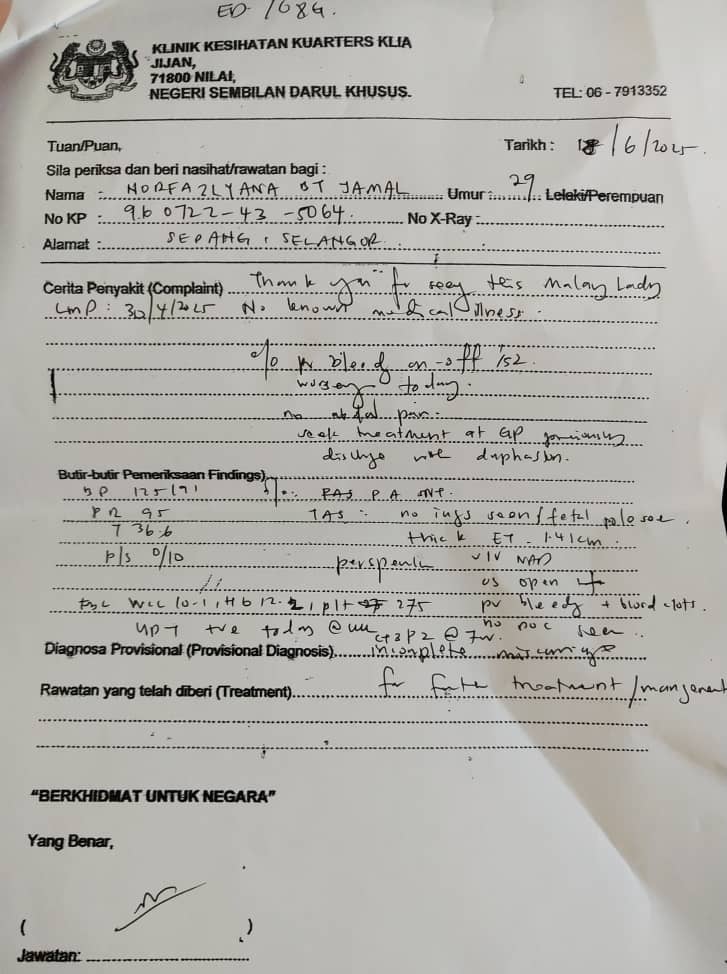 ED 1684.
KLINIK KESIHATAN KUARTERS KLIA
JIJAN,
71800 NILAI,
NEGERI SEMBILAN DARUL KHUSUS.
TEL: 06 - 7913352
Tuan/Puan,
Tarikh : /6/2025.
Sila periksa dan beri nasihat/rawatan bagi :
Nama : NORFAZLYANA BT JAMAL Umur : 29 Lelaki/Perempuan
No KP : 960722-43-5064. No X-Ray :
Alamat : SEPANG, SELANGOR.
Cerita Penyakit (Complaint) Thank you for seeing this Malay Lady
LMP : 30/4/2025 No known medical illness.
c/o PV bleed on-off 1/52.
worsen today.
no abdo pain.
seek treatment at GP previously
discharge with duphaston.
Butir-butir Pemeriksaan Findings)
BP 125/91 P A SNT.
PR 95 TAS : no seen / fetal pole see.
T 36.6 thick ET - 1.41cm.
p/s 0/10 V/V NAD
os open
FBC WCC 10.1, Hb 12.2, plt 275 pv bleedg + blood clots.
UPT +ve today @ no POC seen.
G3P2 @ 7w.
Diagnosa Provisional (Provisional Diagnosis) incomplete miscarriage
Rawatan yang telah diberi (Treatment) for further treatment/management
“BERKHIDMAT UNTUK NEGARA”
Yang Benar,
( )
Jawatan: